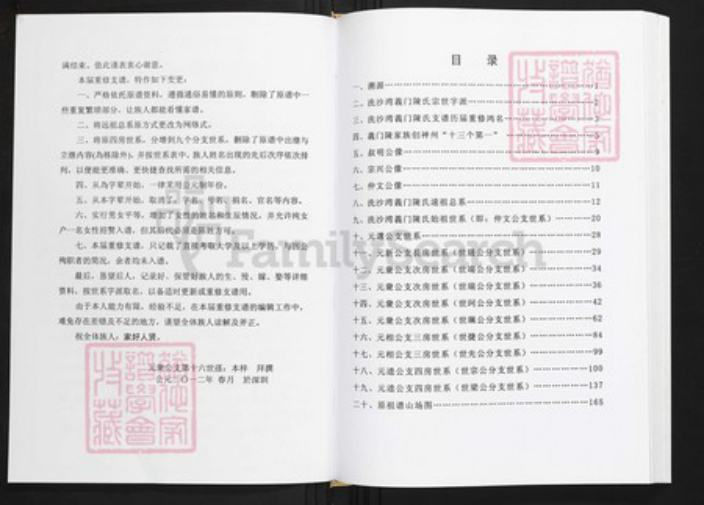 满结束。值此谨表衷心谢意。
本届重修支谱，特作如下变更：
一、严格依托原谱资料，遵循通俗易懂的原则，删除了原谱中一
些重复繁琐部分，让族人都能看懂家谱。
二、将远祖总系原方式更改为网络式。
三、将原四房世系，分增到九个分支世系，删除了原谱中出继与
立继内容(为核除外)，并按世系表中，族人姓名出现的先后次序依次排
列，以便能更准确、更快捷查找所需的相关信息。
四、从為字辈开始，一律采用公元制年份。
五、从本字辈开始，取消了：字名、号名、榜名、官名等内容。
六、实行男女平等，增加了女性的姓名和生辰情况，并允许纯女
户一名女性招赘入谱，但其后代必须是陈姓方可。
七、本届重修支谱，只记载了直接考取大学及以上学历，与因公
殉职者的简况，余者均未入谱。
最后，愿望后人，记录好、保管好族人的生、殁、嫁、娶等详细
资料，按世系字派取名，以备适时更新或重修支谱用。
由于本人能力有限，经验不足，在本届重修支谱的编辑工作中，
难免存在差错及不足的地方，谨望全体族人谅解及斧正。
祝全体族人：家好人贤。
元衆公支第十六世孫：本样 拜撰
公元二〇一二年 春月 於深圳
目 录
一、溯源……1
二、洗沙湾義门陳氏宗世字派……2
三、洗沙湾義门陳氏支谱历届重修鸿名……3
四、義门陳家族创神州“十三个第一”……5
五、叔明公像……9
六、宗兴公像……10
七、仲文公像……11
八、洗沙湾義门陳氏遠祖总系……12
九、洗沙湾義门陳氏始祖世系（即：仲文公支世系）……20
十、元選公支世系……28
十一、元新公支長房世系（世通公分支世系）……29
十二、元衆公支次房世系（世端公分支世系）……34
十三、元衆公支次房世系（世瑞公分支世系）……36
十四、元衆公支次房世系（世珂公分支世系）……42
十五、元衆公支次房世系（世斕公分支世系）……62
十六、元相公支三房世系（世捷公分支世系）……84
十七、元相公支三房世系（世先公分支世系）……99
十八、元遠公支四房世系（世宗公分支世系）……100
十九、元遠公支四房世系（世梁公分支世系）……137
二十、原祖谱山场图……165
FamilySearch